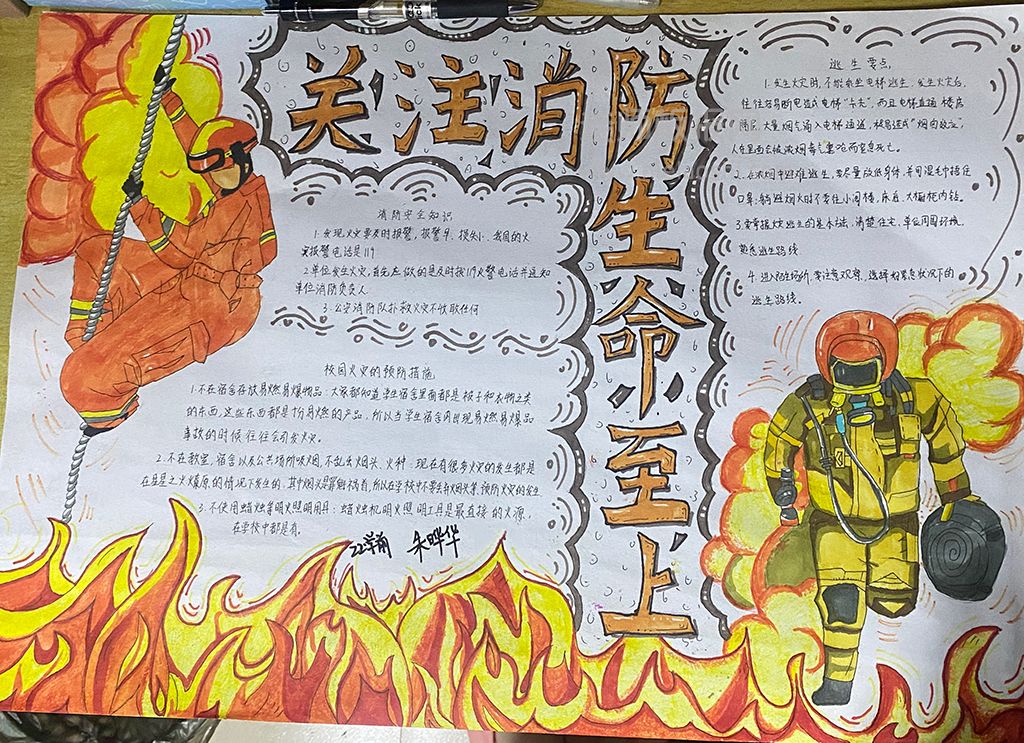 关注消防
生命至上
消防安全知识
1.发现火灾要及时报警，报警早、损失小、我国的火
灾报警电话是119
2.单位发生火灾，首先应做的是及时拨119火警电话并通知
单位消防负责人
3.公安消防队扑救火灾不收取任何
校园火灾的预防措施
1.不在宿舍存放易燃易爆物品：大家都知道学生宿舍里面都是被子和衣物之类
的东西，这些东西都是易燃的产品，所以当学生宿舍内出现易燃易爆品
事故的时候往往会引发火灾。
2.不在教室、宿舍以及公共场所吸烟，不乱丢烟头、火种：现在有很多火灾的发生都是
在星星之火燎原的情况下发生的，其中烟头是罪魁祸首，所以在学校中不要丢弃烟头等，预防火灾的发生
3.不使用蜡烛等明火照明用具：蜡烛机明火照明工具是最直接的火源，
在学校中都是有。
22学前 朱晔华
逃生要点
1.发生火灾时，不能乘坐电梯逃生，发生火灾后，
往往容易断电造成电梯“卡夫”，而且电梯直通楼房
隔层，大量烟气涌入电梯通道，极易造成“烟囱效应”，
人在里面会被浓烟毒气熏呛而窒息死亡。
2.在浓烟中避难逃生，要尽量放低身体，并用湿毛巾捂住
口鼻，躲避烟火时不要往小阁楼、床底、大橱柜内钻。
3.要掌握火灾逃生的基本方法，清楚住宅、单位周围环境，
熟悉逃生路线
4.进入陌生场所，要注意观察，选择好紧急状况下的
逃生路线。